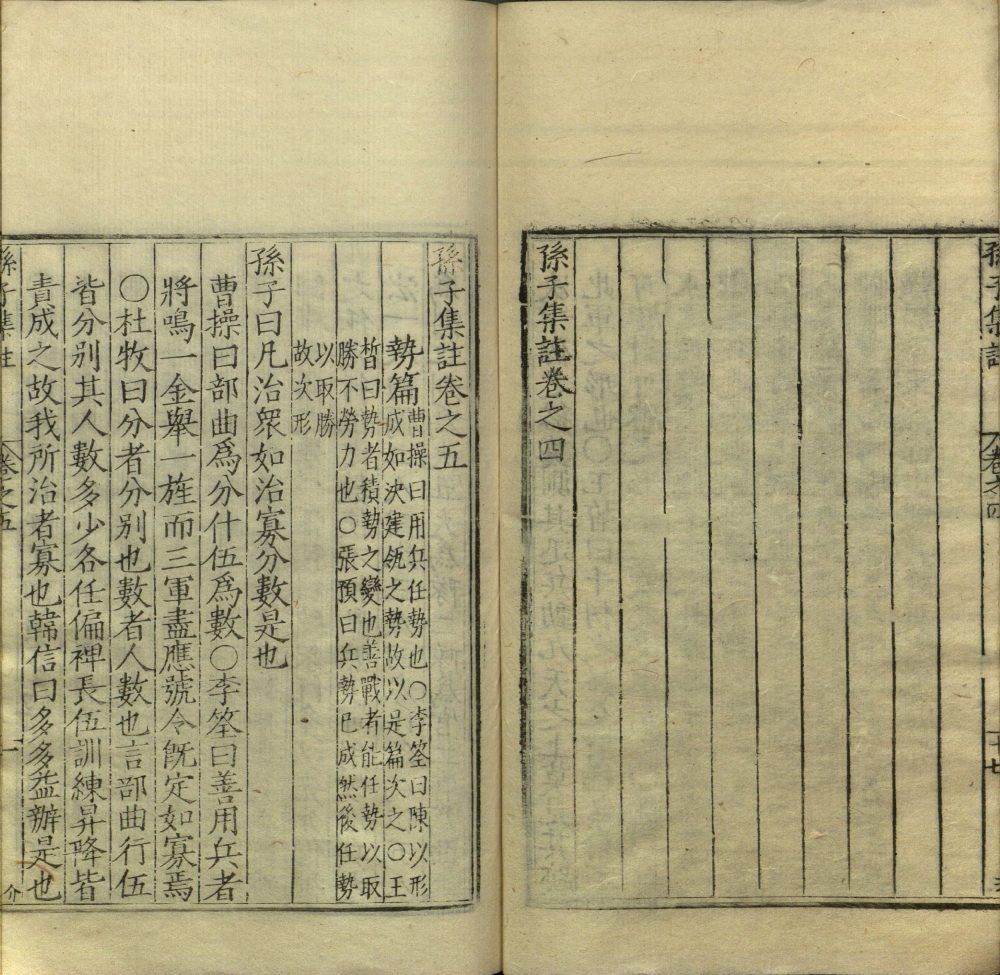 孫子集註
卷之四
孫子集註卷之四
孫子集註卷之五
勢篇
曹操曰用兵任勢也○李筌曰陳以形
成如決建瓴之勢故以是篇次之○王
晳曰勢者積勢之變也善戰者能任勢以取
勝不勞力也○張預曰兵勢已成然後任勢
以取勝
故次形
孫子曰凡治衆如治寡分數是也
曹操曰部曲爲分什伍爲數○李筌曰善用兵者
將鳴一金舉一旌而三軍盡應號令旣定如寡焉
○杜牧曰分者分别也數者人數也言部曲行伍
皆分别其人數多少各任偏裨長伍訓練昇降皆
責成之故我所治者寡也韓信曰多多益辦是也
孫子集註
卷之五
一